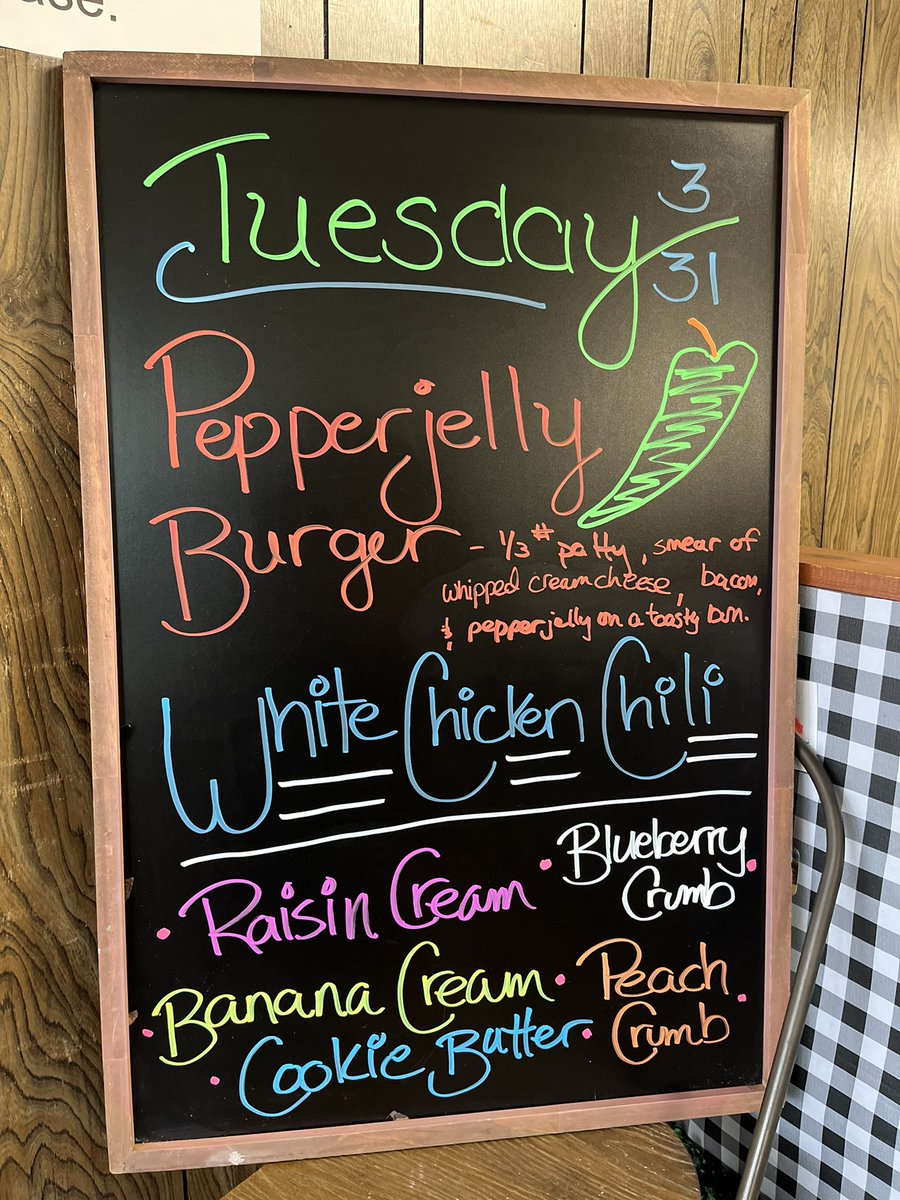 ase.
Tuesday 3/31
Pepperjelly
Burger - 1/3# patty, smear of
whipped creamcheese, bacon,
& pepperjelly on a toasty bun.
White Chicken Chili
• Raisin Cream • Blueberry Crumb •
• Banana Cream • Peach Crumb •
• Cookie Butter •